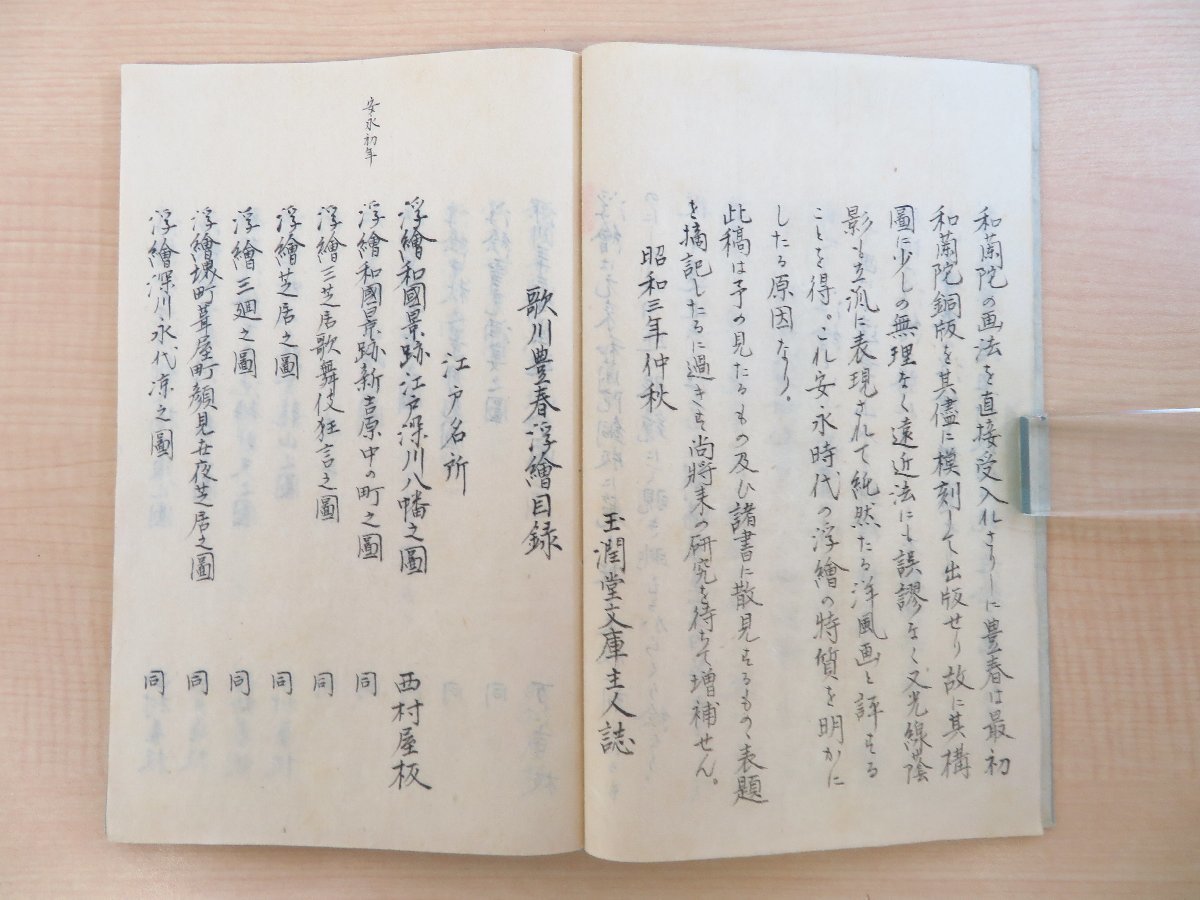 和蘭陀の画法を直接受入れさりしに豊春は最初
和蘭陀銅版を其儘に模刻して出版せり故に其構
圖に少しの無理なく遠近法にも誤謬なく又光線陰
影も立派に表現されて純然たる洋風画と評する
ことを得。これ安永時代の浮繪の特質を明かに
したる原因なり。
此稿は予の見たるもの及ひ諸書に散見するもの〻表題
を摘記したるに過きす尚將来の研究を待ちて増補せん。
昭和三年仲秋
玉潤堂文庫主人誌
歌川豊春浮繪目録
江戸名所
浮繪和國景跡江戸深川八幡之圖 西村屋板
安永初年 浮繪和國景跡新吉原中の町之圖 同
浮繪三芝居歌舞伎狂言之圖 同
浮繪芝居之圖 同
浮繪三廻之圖 同
浮繪堺町葺屋町顔見世夜芝居之圖 同
浮繪深川永代凉之圖 同